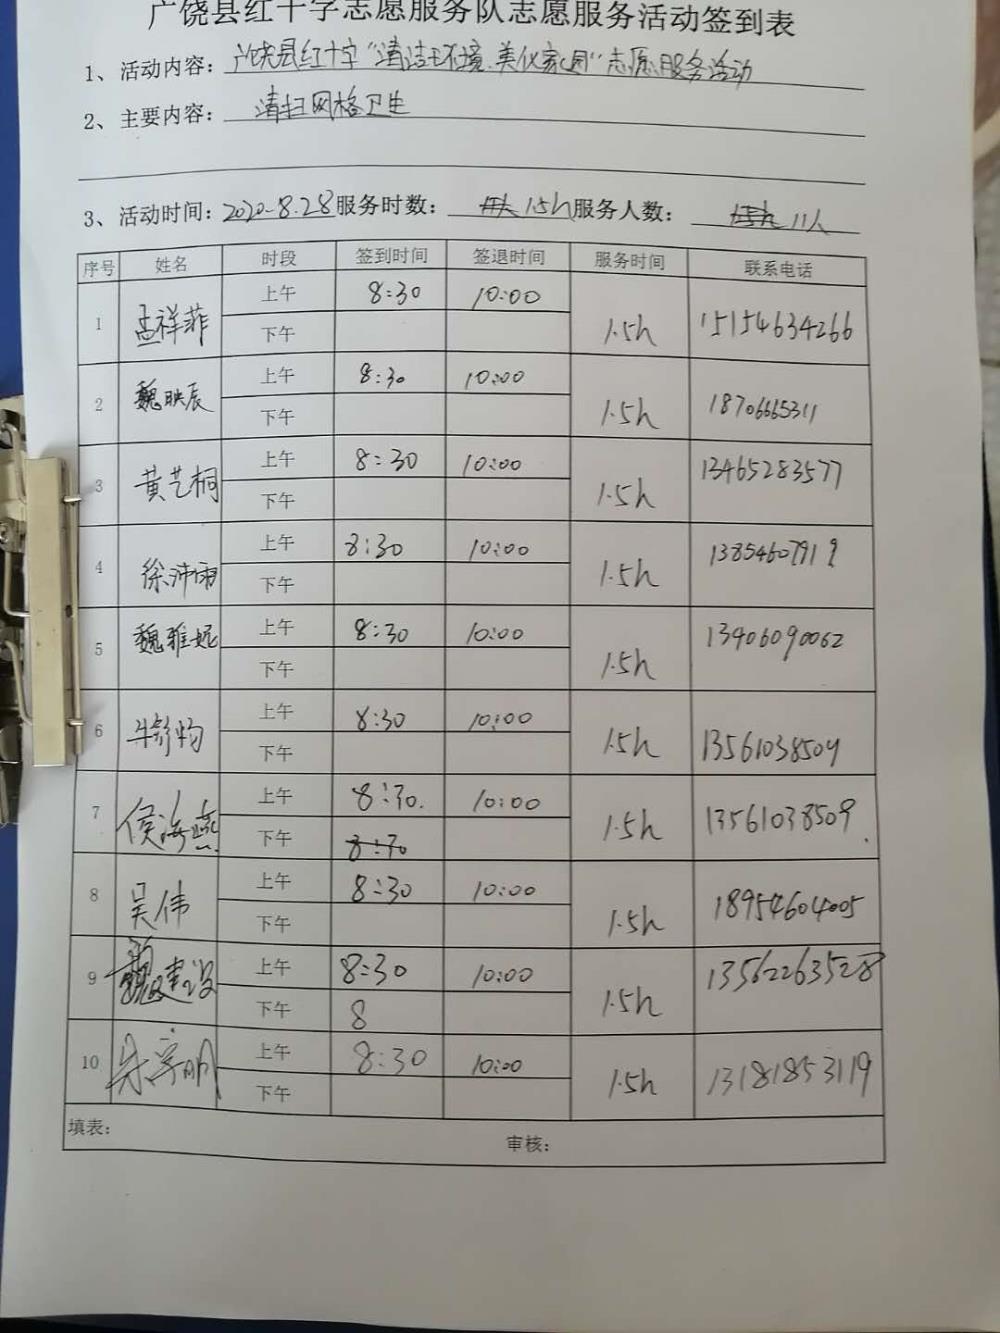 广饶县红十字志愿服务队志愿服务活动签到表
1、活动内容：广饶县红十字“清洁环境.美化家园”志愿服务活动
2、主要内容：清扫网格卫生
3、活动时间：2020-8.28服务时数：1.5h服务人数：11人
序号 姓名 时段 签到时间 签退时间 服务时间 联系电话
1 孟祥菲 上午 8:30 10:00 1.5h 15154634266
下午
2 魏映辰 上午 8:30 10:00 1.5h 18706665311
下午
3 黄艺桐 上午 8:30 10:00 1.5h 13465283577
下午
4 徐沛 上午 8:30 10:00 1.5h 13854607919
下午
5 魏雅妮 上午 8:30 10:00 1.5h 13406090062
下午
6 上午 8:30 10:00 1.5h 13561038509
下午
7 侯海燕 上午 8:30. 10:00 1.5h 13561038509.
下午 8:30
8 吴伟 上午 8:30 10:00 1.5h 18954604005
下午
9 魏建设 上午 8:30 10:00 1.5h 13562263528
下午 8
10 明 上午 8:30 10:00 1.5h 13181853119
下午
填表：
审核：